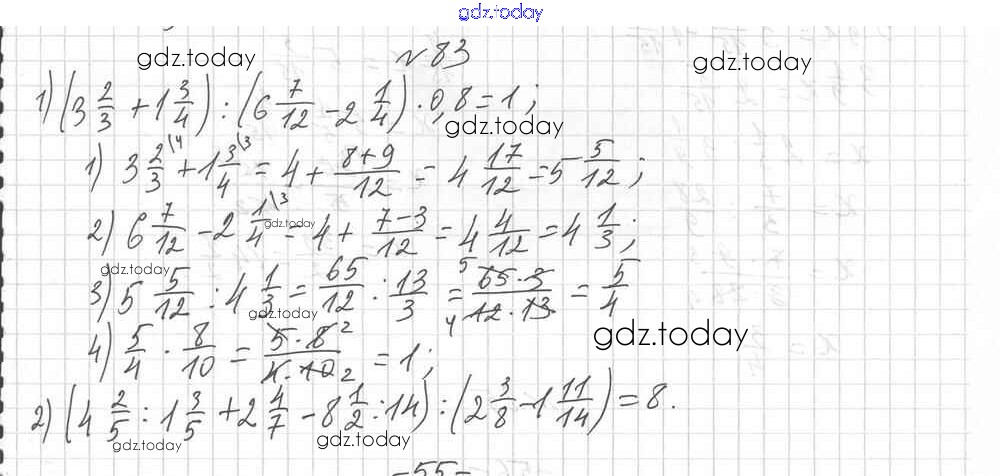 gdz.today
№ 83
gdz.today gdz.today
1) (3 2/3 + 1 3/4) : (6 7/12 - 2 1/4) · 0,8 = 1;
gdz.today
1) 3 2/3 \4 + 1 3/4 \3 = 4 + (8+9)/12 = 4 17/12 = 5 5/12;
2) 6 7/12 - 2 1/4 \3 = 4 + (7-3)/12 = 4 4/12 = 4 1/3;
gdz.today
gdz.today
3) 5 5/12 : 4 1/3 = 65/12 : 13/3 = 5 (65·3)/(12·13) 4 = 5/4
gdz.today
gdz.today
4) 5/4 · 8/10 = (5·8 2)/(4·10 2) = 1;
2) (4 2/5 : 1 3/5 + 2 4/7 - 8 1/2 : 14) : (2 3/8 - 1 11/14) = 8.
gdz.today gdz.today
-55-